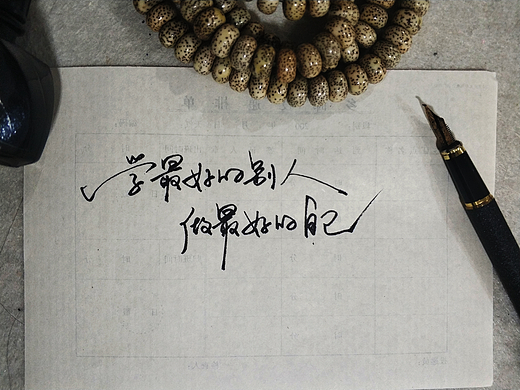 学最好的别人
做最好的自己